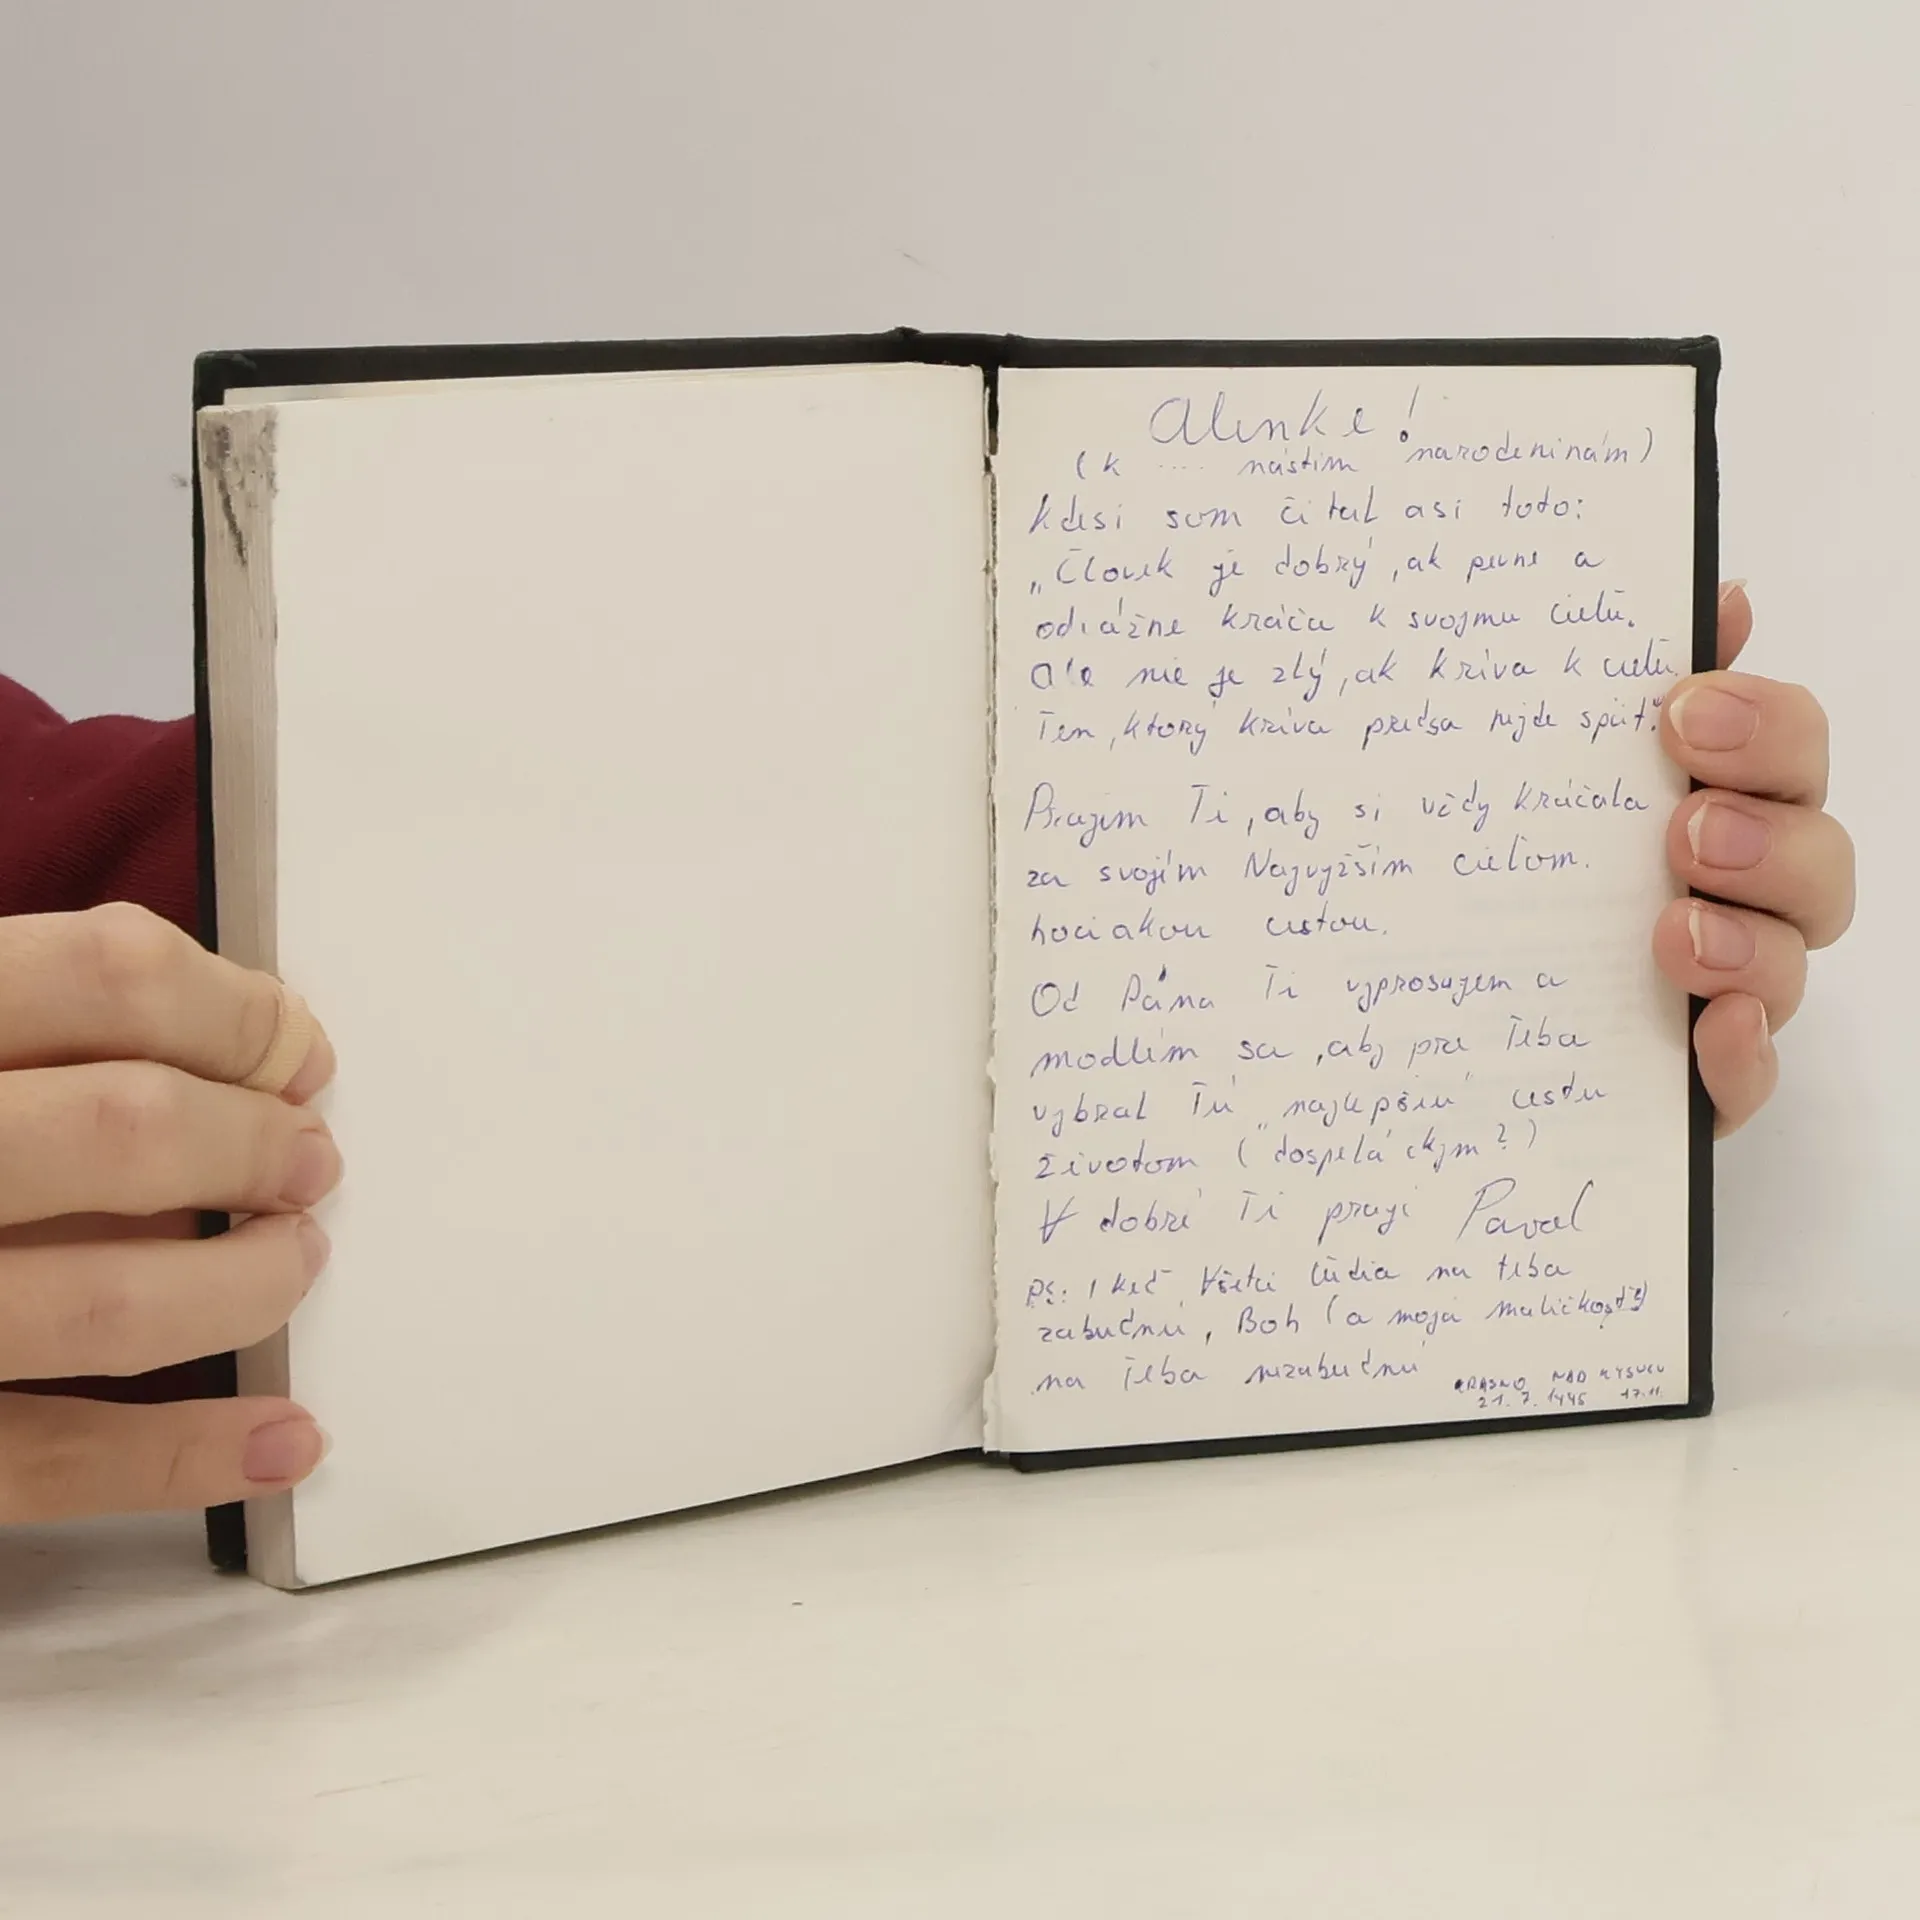 Alenke!
(k .... nástim narodeninám)
Kdesi som čítal asi toto:
„Človek je dobrý, ak pevne a
odvážne kráča k svojmu cieľu.
Ale nie je zlý, ak kríva k cieľu.
Ten, ktorý kríva predsa nejde späť."
Prajem Ti, aby si vždy kráčala
za svojím Najvyžším cieľom.
hociakou cestou.
Od Pána Ti vyprosujem a
modlím sa, aby pre Teba
vybral Tú „najlepšiu" cestu
životom (dospeláckym?)
V dobré Ti praji Pavol
PS: I keď Všetci ľúdia na teba
zabudnú, Boh (a moja maličkosť)
na Teba nezabudnú
KRÁSNO NAD KYSUCU
21. 7. 17.11.